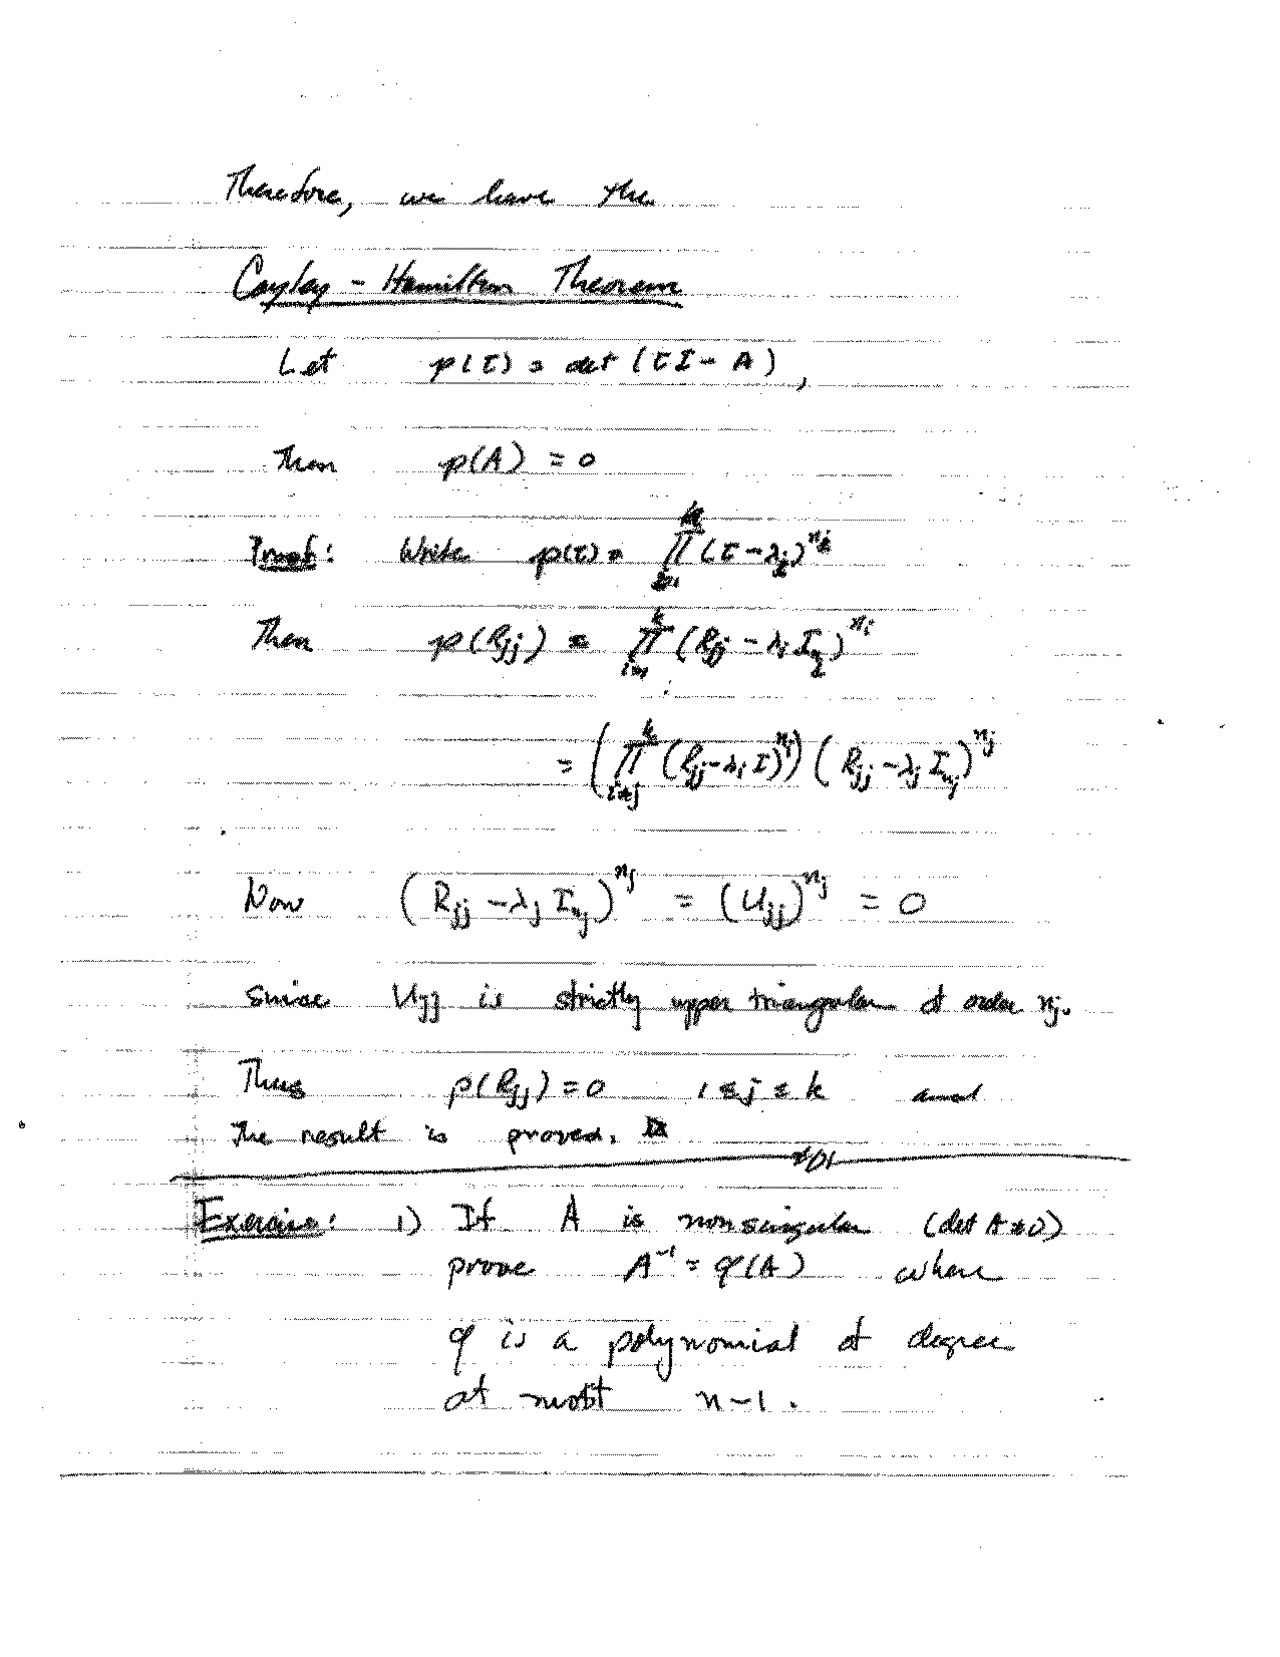 Therefore, we have the
Cayley - Hamilton Theorem
Let p(τ) = det (τI - A),
Then p(A) = 0
Proof: Write p(τ) = ∏ (τ - λ_j)^{n_j}
Then p(R_jj) = ∏_{i=1}^{k} (R_jj - λ_i I_{n_j})^{n_i}
= (∏_{i≠j}^{k} (R_jj - λ_i I)^{n_i}) (R_jj - λ_j I_{n_j})^{n_j}
Now (R_jj - λ_j I_{n_j})^{n_j} = (U_jj)^{n_j} = 0
Since U_jj is strictly upper triangular of order n_j.
Thus p(R_jj) = 0 1 ≤ j ≤ k and
The result is proved.
Exercise: 1) If A is nonsingular (det A ≠ 0)
prove A^{-1} = q(A) where
q is a polynomial of degree
at most n-1.